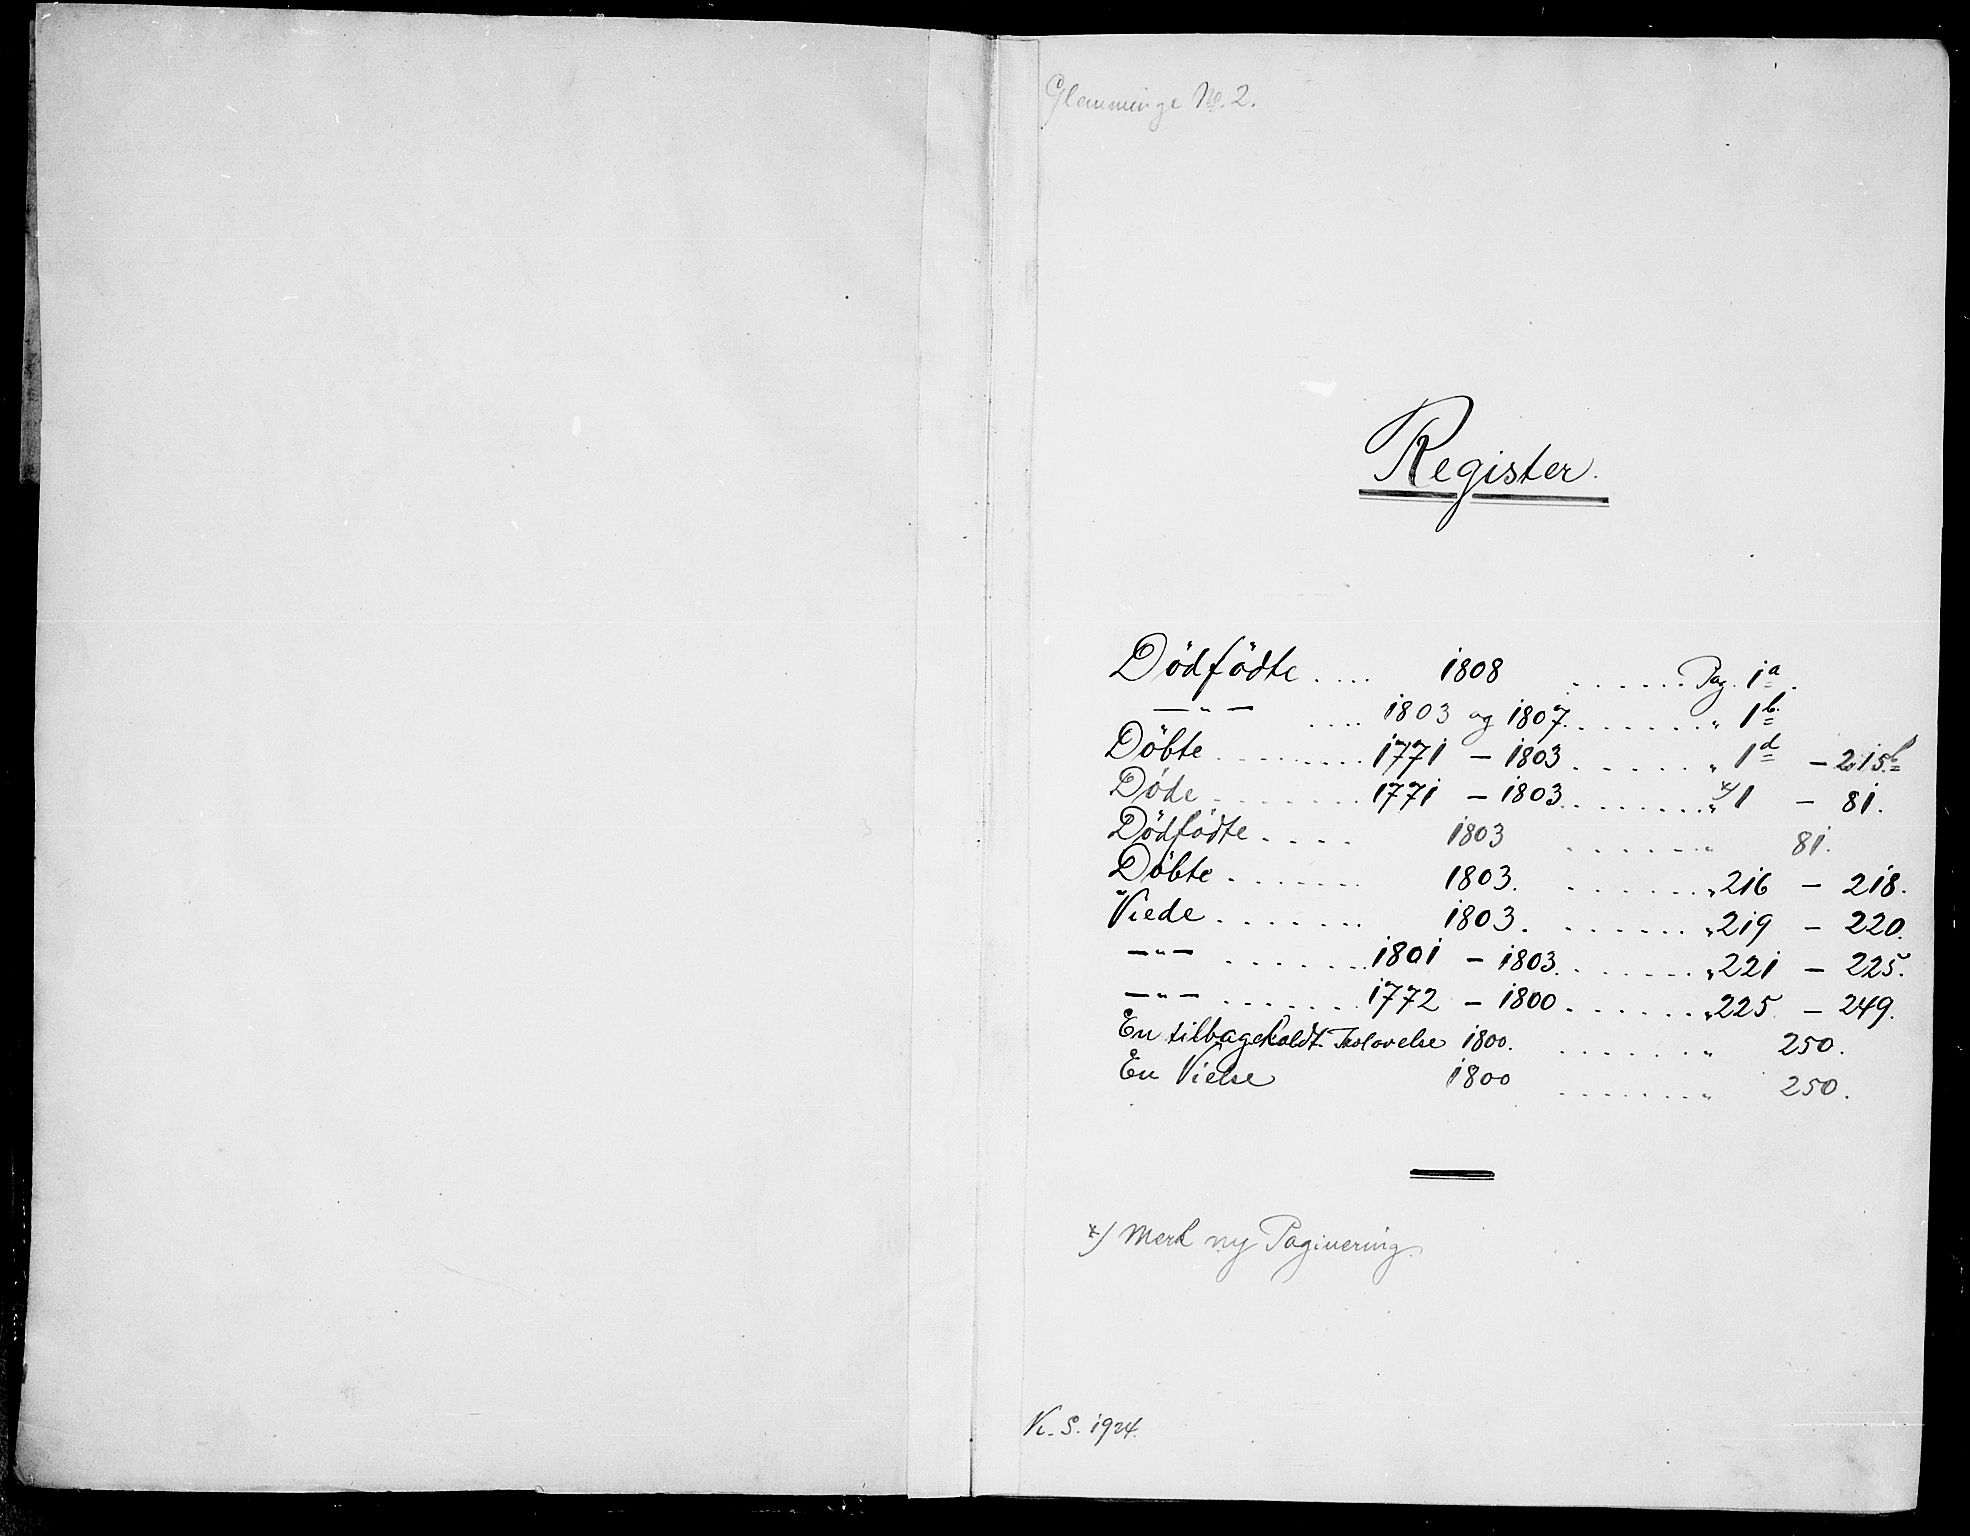 Glemminge No. 2.
Register.
Dödfödte .... 1808 ...... Pag. 1a.
— " — .... 1803 og 1807. ...... " 1b.
Döbte ......... 1771 — 1803 ...... " 1d — 215b.
Döde ........ 1771 — 1803 ....... " x) 1 — 81.
Dödfödte .... 1803 ...... " 81.
Döbte ....... 1803. ...... " 216 — 218.
Viede ....... 1803. ...... " 219 — 220.
— " — ....... 1801 — 1803. ...... " 221 — 225.
— " — ....... 1772 — 1800 ...... " 225 — 249.
En tilbageholdt Trolovelse 1800. ...... " 250.
En Vielse 1800 ...... " 250.
x) Merk ny Paginering.
K. S. 1924.